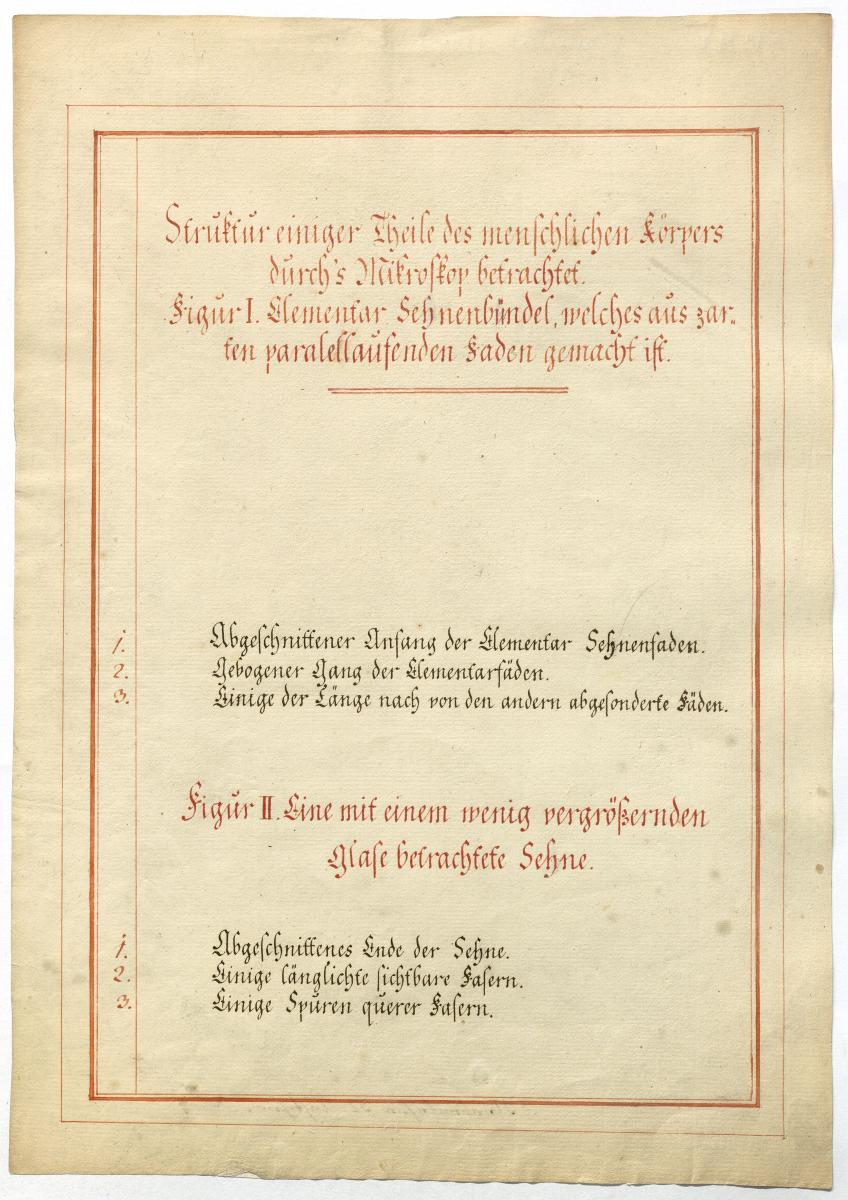 Struktur einiger Theile des menschlichen Körpers
durch's Mikroskop betrachtet.
Figur I. Elementar Sehnenbündel, welches aus zar-
ten paralellaufenden Faden gemacht ist.
1. Abgeschnittener Anfang der Elementar Sehnenfaden.
2. Gebogener Gang der Elementarfäden.
3. Einige der Länge nach von den andern abgesonderte Fäden.
Figur II. Eine mit einem wenig vergrößernden
Glase betrachtete Sehne.
1. Abgeschnittenes Ende der Sehne.
2. Einige länglichte sichtbare Fasern.
3. Einige Spuren querer Fasern.